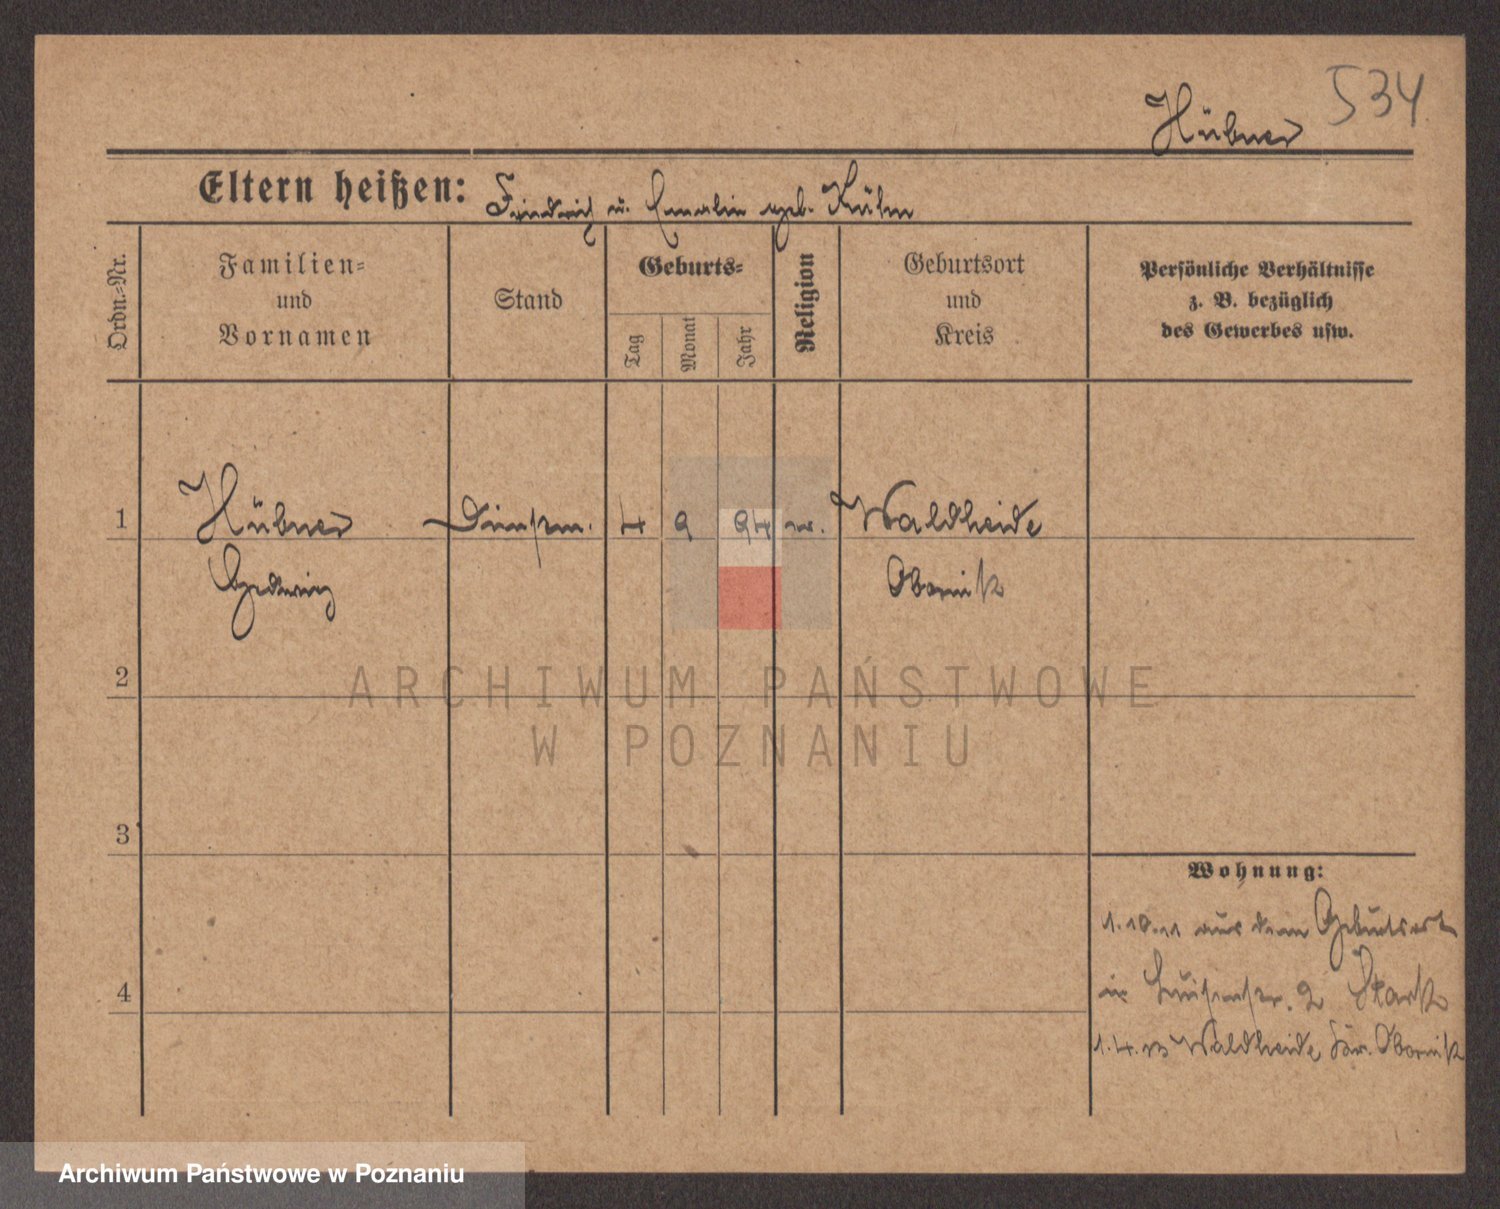 534
Hübner
Eltern heißen: Friedrich u. Emalin geb. Kühn
Ordn.=Nr.
Familien=
und
Vornamen
Stand
Geburts=
Tag
Monat
Jahr
Religion
Geburtsort
und
Kreis
Persönliche Verhältnisse
z. B. bezüglich
des Gewerbes usw.
1 Hübner Dienstm. 4 9 94 ev. Waldheide
Hedwig Obornik
2
ARCHIWUM PAŃSTWOWE
W POZNANIU
3
4
Wohnung:
1.10.11 aus dem Geburtsort
in Luisenstr. 2
1.4.13 Waldheide Kr. Obornik
Archiwum Państwowe w Poznaniu